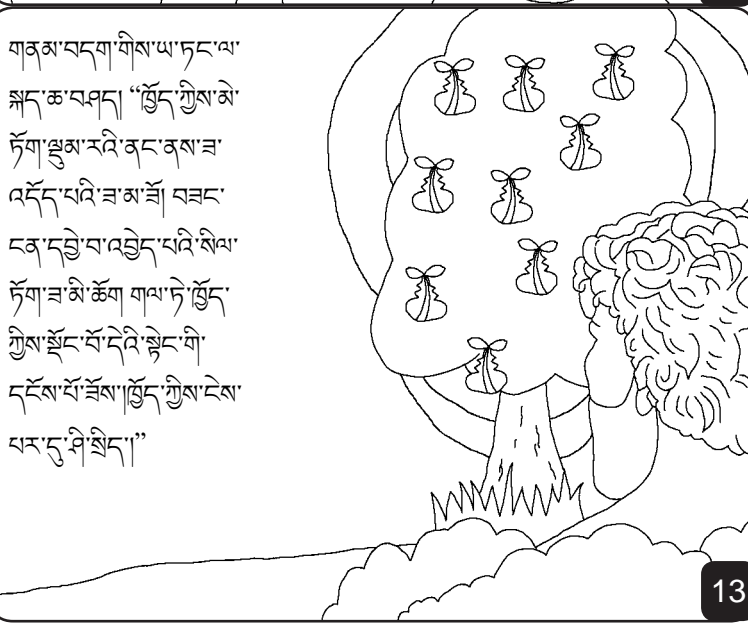 གནམ་བདག་གིས་ཡ་ཏང་ལ་
སྐད་ཆ་བཤད། “ཁྱོད་ཀྱིས་མེ་
ཏོག་ལྡུམ་རའི་ནང་ནས་ཟ་
འདོད་པའི་ཟ་མ་ཟོ། བཟང་
ངན་དབྱེ་བ་འབྱེད་པའི་སིལ་
ཏོག་ཟ་མི་ཆོག གལ་ཏེ་ཁྱོད་
ཀྱིས་སྡོང་བོ་དེའི་སྟེང་གི་
དངོས་པོ་ཟོས།ཁྱོད་ཀྱིས་ངེས་
པར་དུ་ཤི་སྲིད།”
13